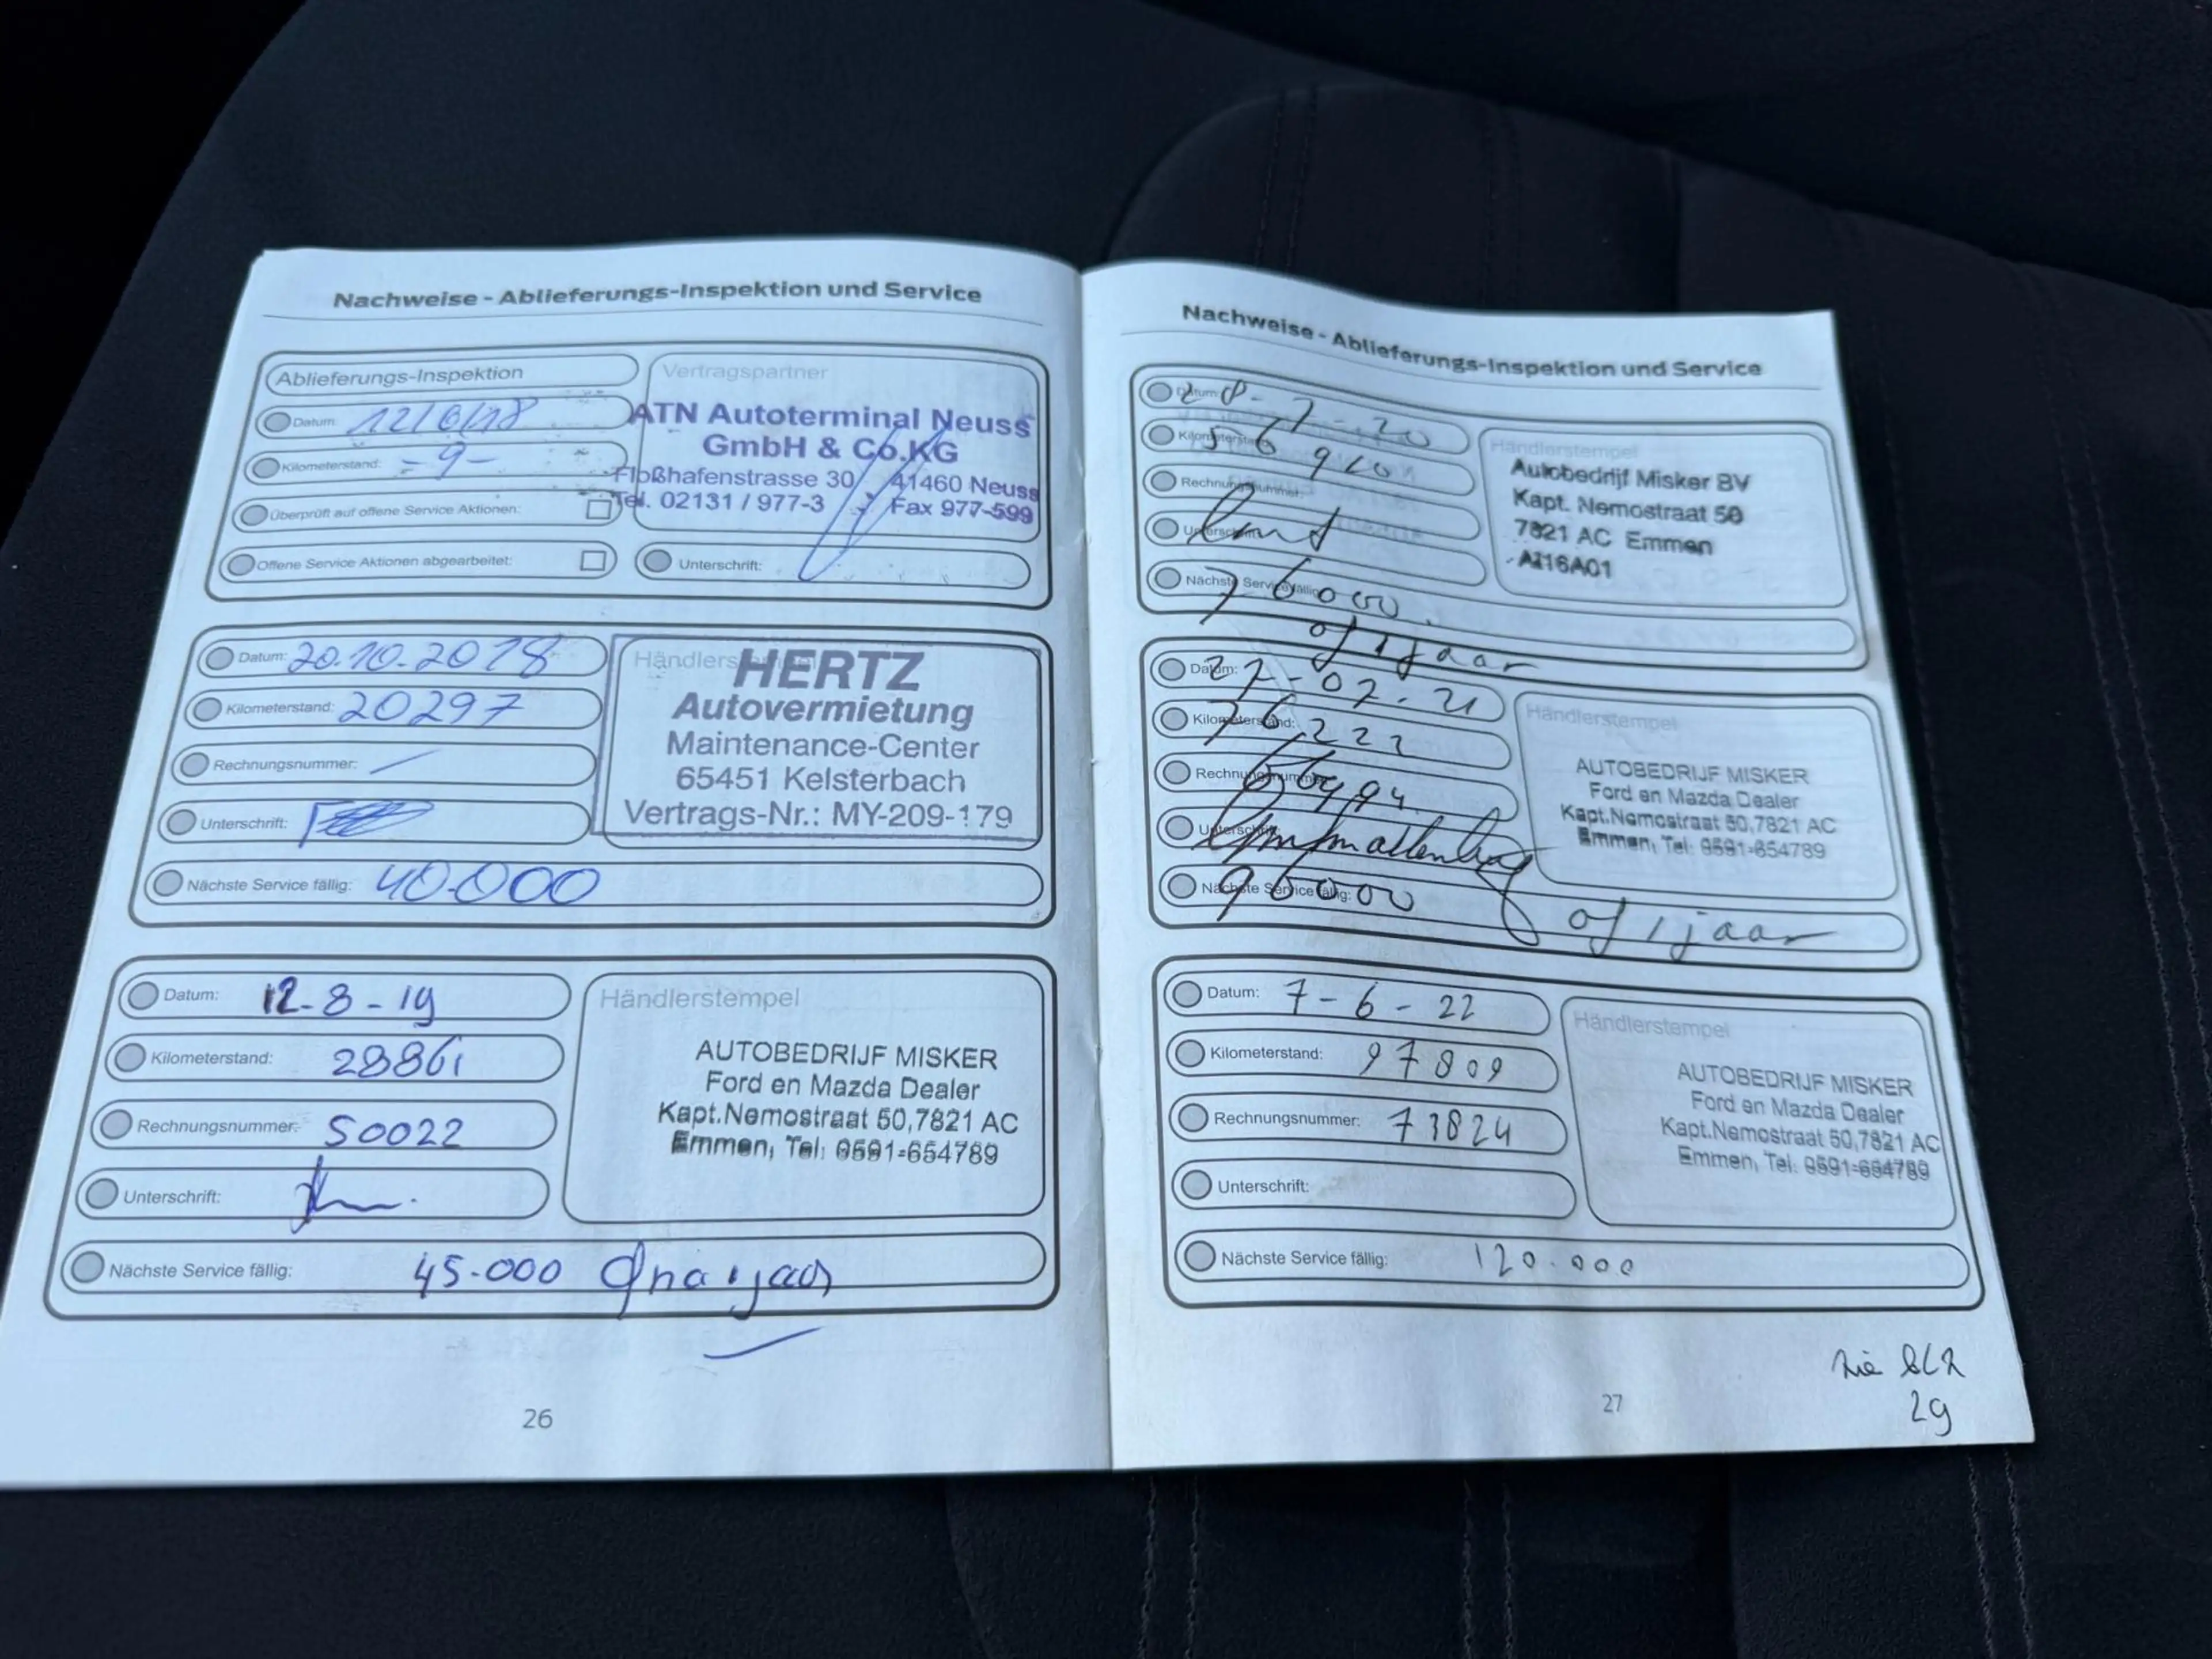 Nachweise - Ablieferungs-Inspektion und Service
Ablieferungs-Inspektion
Vertragspartner
Datum: 12/6/18
Kilometerstand: - 9 -
Überprüft auf offene Service Aktionen:
Offene Service Aktionen abgearbeitet:
ATN Autoterminal Neuss
GmbH & Co.KG
Floßhafenstrasse 30 41460 Neuss
Tel. 02131 / 977-3 Fax 977-599
Unterschrift:
Datum: 20.10.2018
Kilometerstand: 20297
Rechnungsnummer:
Unterschrift:
Nächste Service fällig: 40.000
HERTZ
Autovermietung
Maintenance-Center
65451 Kelsterbach
Vertrags-Nr.: MY-209-179
Datum: 12-8-19
Kilometerstand: 28861
Rechnungsnummer: 50022
Unterschrift:
Nächste Service fällig: 45.000
Händlerstempel
AUTOBEDRIJF MISKER
Ford en Mazda Dealer
Kapt.Nemostraat 50,7821 AC
Emmen, Tel: 0591-654789
26
Nachweise - Ablieferungs-Inspektion und Service
Datum: 28-7-20
Kilometerstand: 56910
Rechnungsnummer:
Unterschrift:
Nächste Service fällig: 76000
of 1 jaar
Händlerstempel
Autobedrijf Misker BV
Kapt. Nemostraat 50
7821 AC Emmen
AI16A01
Datum: 27-07-21
Kilometerstand: 76222
Rechnungsnummer:
Unterschrift:
Nächste Service fällig: 96000 of 1 jaar
Händlerstempel
AUTOBEDRIJF MISKER
Ford en Mazda Dealer
Kapt.Nemostraat 50,7821 AC
Emmen, Tel: 0591-654789
Datum: 7-6-22
Kilometerstand: 97809
Rechnungsnummer: 73824
Unterschrift:
Nächste Service fällig: 120.000
Händlerstempel
AUTOBEDRIJF MISKER
Ford en Mazda Dealer
Kapt.Nemostraat 50,7821 AC
Emmen, Tel: 0591-654789
zie BLZ
29
27